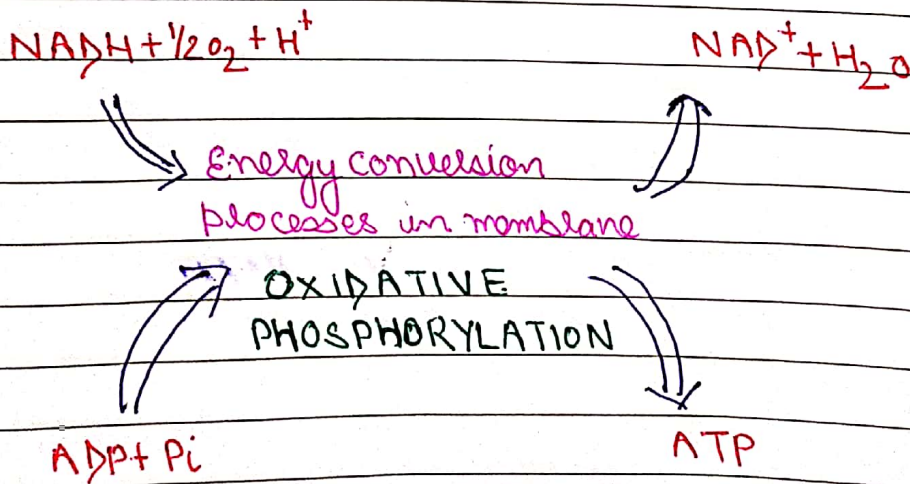 NADH + 1/2 O2 + H+
NAD+ + H2O
Energy conversion
processes in membrane
OXIDATIVE
PHOSPHORYLATION
ADP + Pi
ATP